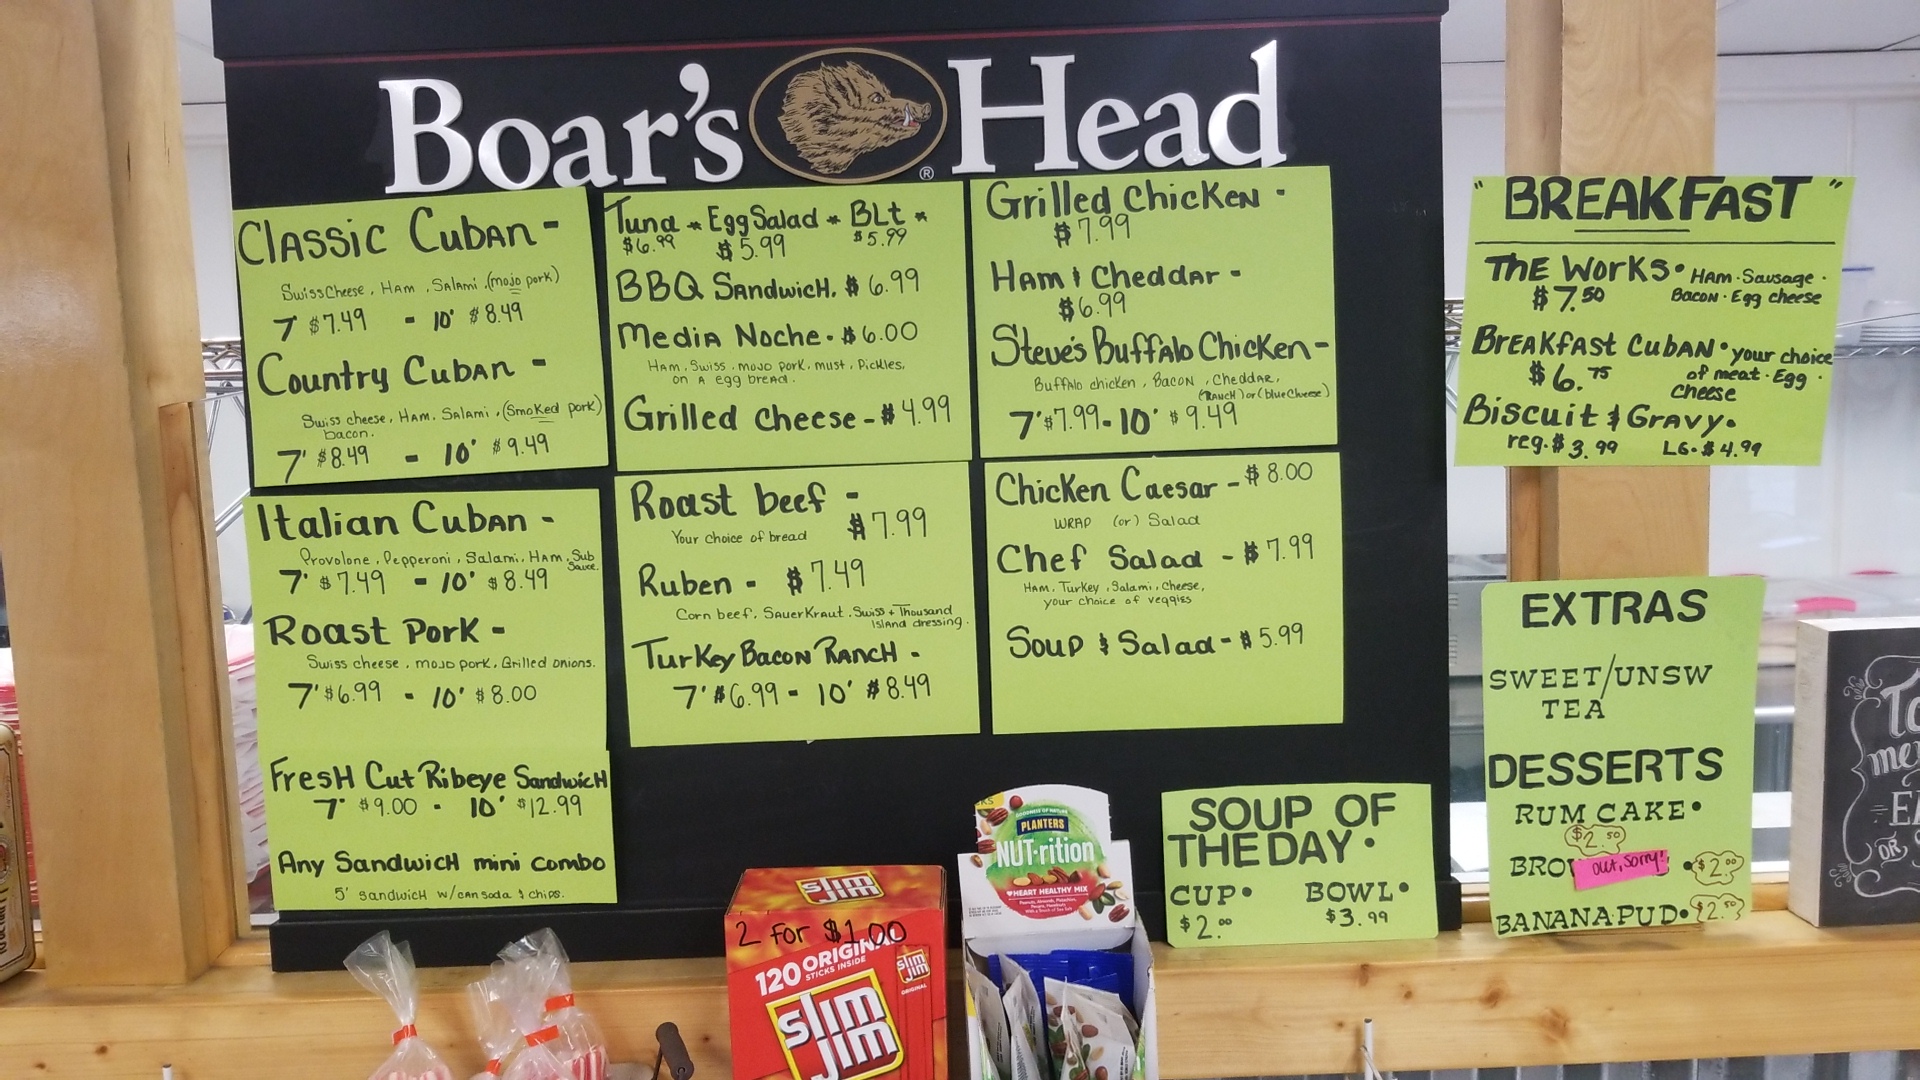 Boar's Head ®
Classic Cuban -
Swiss Cheese, Ham, Salami, (mojo pork)
7' $7.49 - 10' $8.49
Country Cuban -
Swiss cheese, Ham, Salami, (Smoked pork)
bacon.
7' $8.49 - 10' $9.49
Italian Cuban -
Provolone, Pepperoni, Salami, Ham, Sub
Sauce.
7' $7.49 - 10' $8.49
Roast Pork -
Swiss cheese, mojo pork, Grilled onions.
7' $6.99 - 10' $8.00
Fresh Cut Ribeye Sandwich
7' $9.00 - 10' $12.99
Any Sandwich mini combo
5' sandwich w/can soda & chips.
Tuna * Egg Salad * BLt *
$6.99 $5.99 $5.99
BBQ Sandwich. $6.99
Media Noche - $6.00
Ham, Swiss, mojo pork, must, Pickles,
on a egg bread.
Grilled Cheese - $4.99
Roast beef -
Your choice of bread $7.99
Ruben - $7.49
Corn beef, SauerKraut, Swiss + Thousand
Island dressing.
Turkey Bacon Ranch -
7' $6.99 - 10' $8.49
Grilled Chicken -
$7.99
Ham & Cheddar -
$6.99
Steve's Buffalo Chicken -
Buffalo chicken, Bacon, Cheddar,
(Ranch) or (blue Cheese)
7' $7.99 - 10' $9.49
Chicken Caesar - $8.00
WRAP (or) Salad
Chef Salad - $7.99
Ham, Turkey, Salami, Cheese,
your choice of veggies
Soup & Salad - $5.99
"BREAKFAST"
The Works • Ham • Sausage •
$7.50 Bacon • Egg cheese
Breakfast Cuban • your choice
$6.75 of meat • Egg •
cheese
Biscuit & Gravy •
reg. $3.99 LG. $4.99
EXTRAS
SWEET/UNSW
TEA
DESSERTS
RUM CAKE •
$2.50
BRO out, sorry! • $2.00
BANANA PUD • $2.50
SOUP OF
THE DAY •
CUP • BOWL •
$2.00 $3.99
Slim Jim
2 for $1.00
120 ORIGINAL
STICKS INSIDE
Slim Jim
ORIGINAL
Slim
Jim
PLANTERS
NUT-rition
HEART HEALTHY MIX